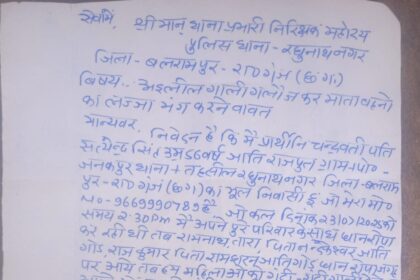 सेवामें, श्रीमान् थाना प्रभारी निरिक्षक महोदय
पुलिस थाना - रघुनाथनगर
जिला - बलरामपुर - रा०गंज (छ०ग०)
विषय.. अश्लील गाली गलौज कर माता बहनो
का लज्जा भंग करने बावत
मान्यवर,
निवेदन है कि मै प्रार्थीनि चन्द्रवती पति
सत्येन्द्र सिंह उम्र 56 वर्ष जाति राजपुत ग्राम+पो०-
जनकपुर थाना+तहसील रघुनाथनगर जिला-बलराम
पुर-रा०गंज (छ०ग०) का मूल निवासी हूँ जो मेरा मो०
NO-9669990789 है जो कल दिनांक 23/07/2025 को
समय 2:30PM मै अपने पुरे परिवार के साथ धान रोपा
कर रही थी तब रामनाथ, तारा पिता नन्हकेश्वर जाति
गोंड, राजकुमार पिता रामधरन जाति गोंड
पर आये तब हम महिलाओ को गंदी-गंदी